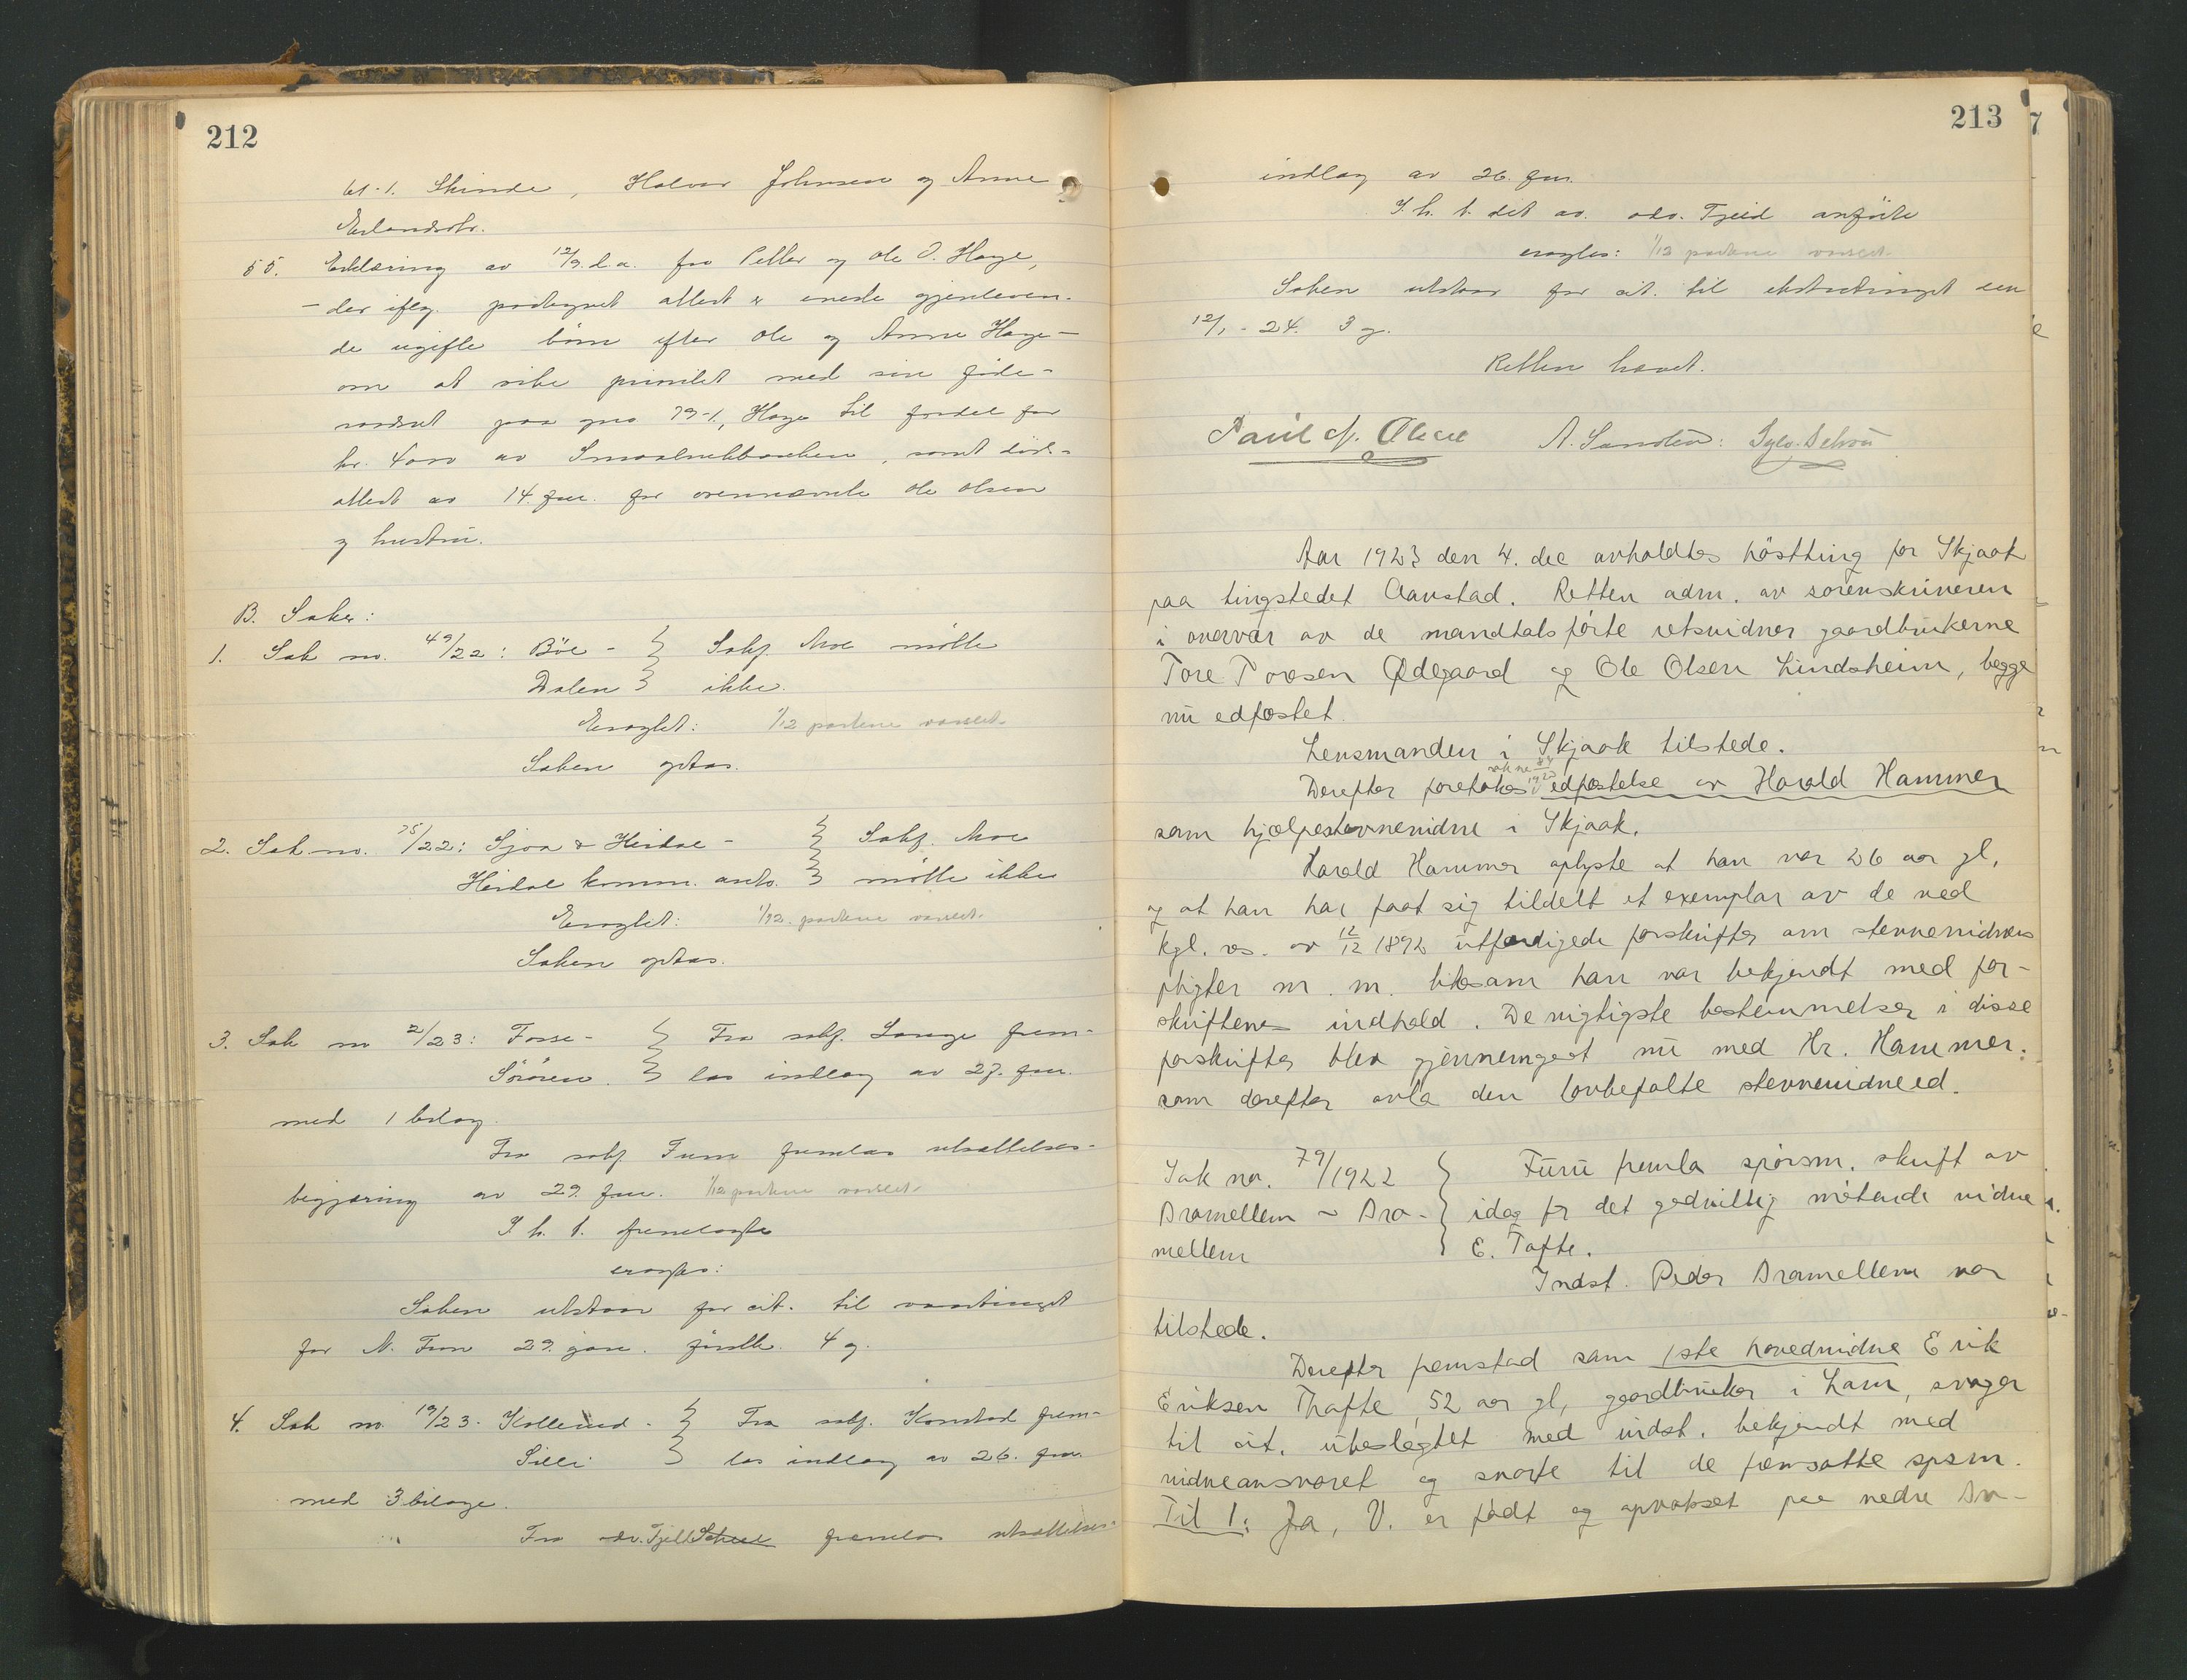 212
61-1. Skinde, Halvor Johnsen og Anne
Erlandsdtr.
55. Erklæring av 12/9 d.a. fra Petter og Ole O. Hage,
— der iflg. paategnet attest er eneste gjenleven-
de ugifte børn efter Ole og Anne Hage —
om at vike prioritet med sin føde-
raadsret paa gno 79-1, Hage til fordel for
kr. 4000 av Smaabrukbanken, samt døds-
attest av 14. fm. for ovennævnte Ole Olsen
og hustru.
B. Saker:
1. Sak no. 49/22: Böe - } Sakf. Moe møtte
Dalen } ikke.
Eragtet: 1/12 partene varslet.
Saken optas.
2. Sak no. 75/22: Sjoa & Heidal - } Sakf. Moe
Heidal komm. anks. } møtte ikke
Eragtet: 1/12. partene varslet.
Saken optas.
3. Sak no 2/23: Fosse - } Fra sakf. Lange frem-
Söröen. } las indlæg av 27. fm.
med 1 bilag.
Fra sakf Furu fremlas utsættelses-
begjæring av 29. fm. 1/12 partene varslet.
I h. t. fremlagte
eragtes:
Saken utstaar for cit. til vaartinget
for N. Fron 29. jan. førstk. 4 g.
4. Sak no. 19/23. Kollerud - } Fra sakf. Konstad frem-
Silli } las indlæg av 26. fm.
med 3 bilage.
Fra adv. Tjeld fremlas utsættelses-
213
indlæg av 26. fm.
I. h. t. det av. adv. Tjeld anførte
eragtes: 1/12 partene varslet.
Saken utstaar for cit. til ekstratinget den
12/1 - 24. 3 g.
Retten hævet.
Paul A. Sandén: Sylv.
Aar 1923 den 4. dec avholdtes høstting for Skjaak
paa tingstedet Aanstad. Retten adm. av sorenskriveren
i overvær av de mandtalsførte retsvidner gaardbrukerne
Tore Toresen Ødegaard og Ole Olsen Lindsheim, begge
nu edfæstet.
Lensmanden i Skjaak tilstede.
sak no 1923
Derefter foretokes edfæstelse av Harald Hammer
som hjælpestævnevidne i Skjaak.
Harald Hammer oplyste at han var 26 aar gl,
og at han har faat sig tildelt et exemplar av de ved
kgl. res. av 12/12 1892 utfærdigede forskrifter om stevnevidners
pligter m. m. likesom han var bekjendt med for-
skriftenes indhold. De vigtigste bestemmelser i disse
forskrifter blev gjennemgaat nu med Hr. Hammer.
som derefter avla den lovbefalte stevnevidneed.
Sak no. 79/1922 } Furu fremla spörsm. skrift av
Dramellem ~ Dra- } idag for det godvillig møtende vidne
mellem } E. Tofte.
Indst. Peder Dramellem var
tilstede.
Derefter fremstod som 1ste hovedvidne Erik
Eriksen Thofte, 52 aar gl, gaardbruker i Lom, svoger
til cit. ubeslegtet med indst. bekjendt med
vidneansvaret og svarte til de fremsatte spsm.
Til 1: Ja, V. er født og opvokset paa nedre Dra-